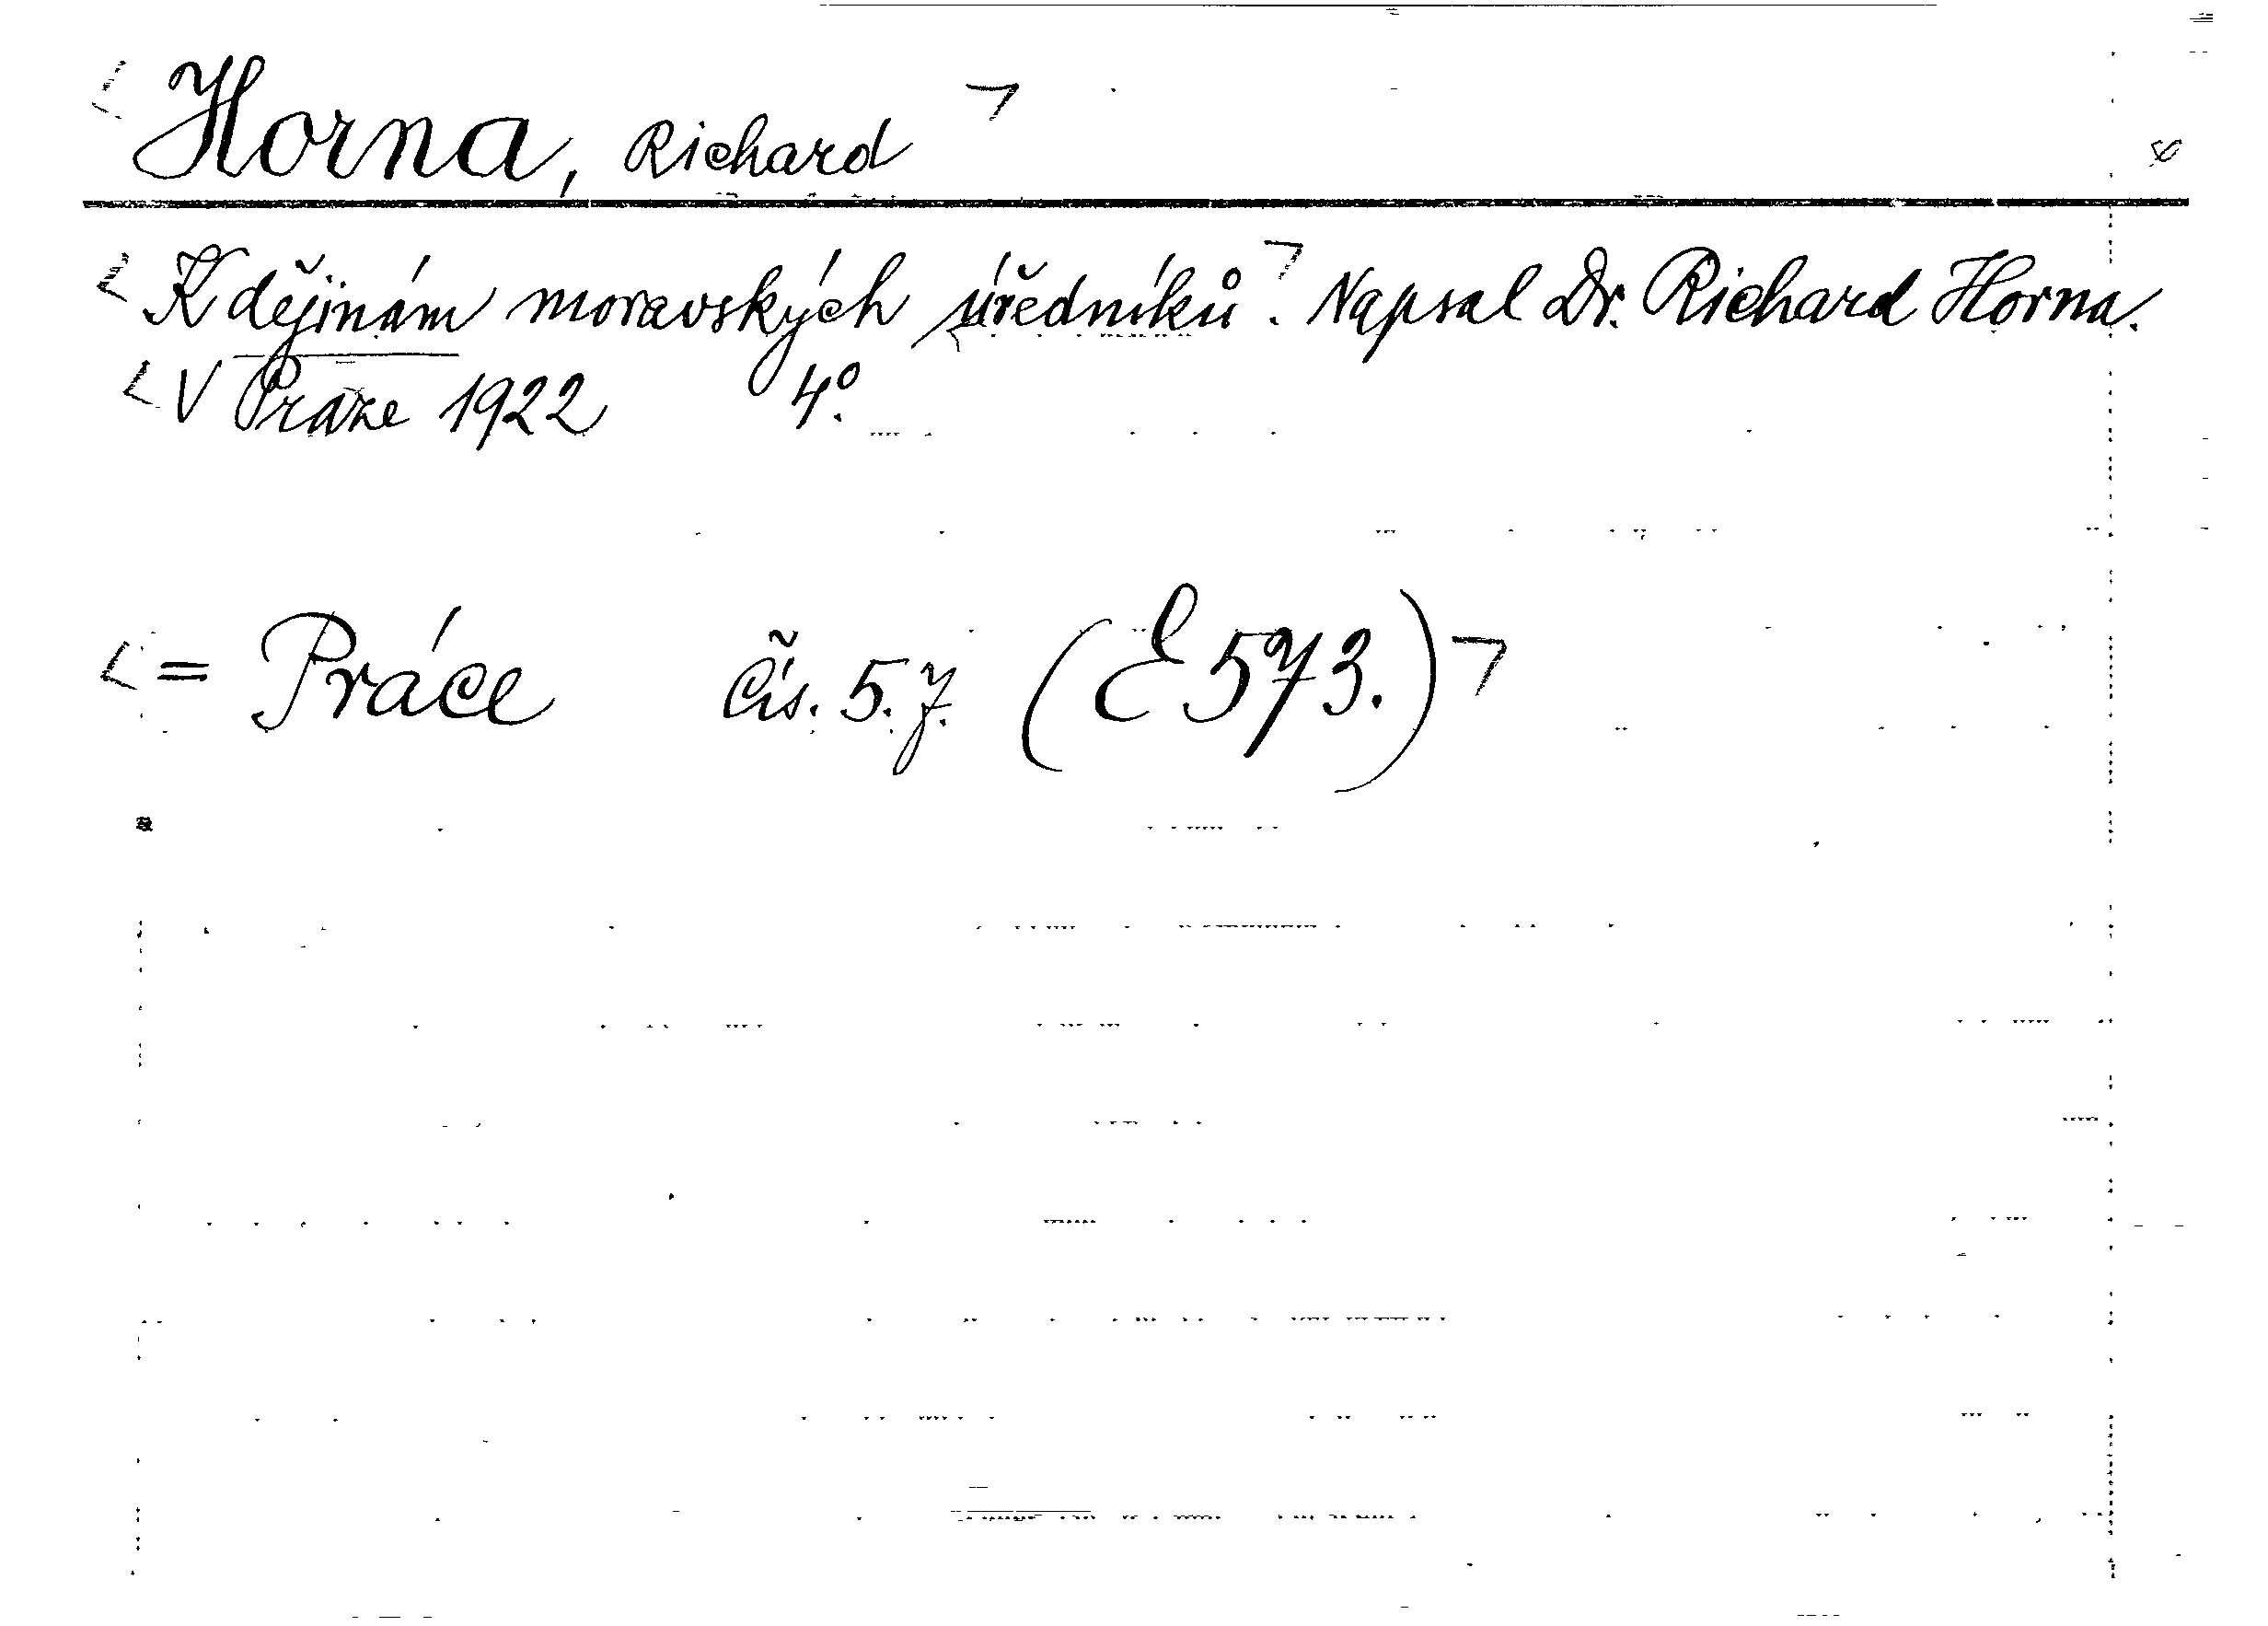 Horna, Richard
K dějinám moravských úředníků. Napsal Dr. Richard Horna.
V Praze 1922 4°.
= Práce čís. 5.7. (E 573.)